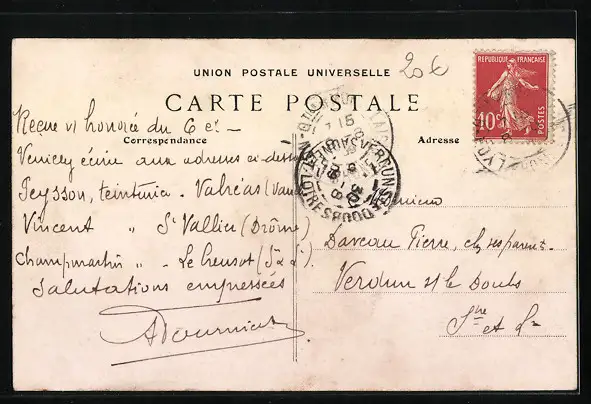 UNION POSTALE UNIVERSELLE
20€
CARTE POSTALE
Correspondance
Adresse
REPUBLIQUE FRANÇAISE
10c
POSTES
Reçue v/ honorée du 6 ct –
Veuillez écrire aux adresses ci-dessous
Peysson, teinturier. Valréas (Vau
Vincent " St Vallier (Drôme)
Champmartin " - Le Creusot (S. & L.)
Salutations empressées
Monsieur
Daveau Pierre, chez ses parents
Verdun s/ le Doubs
Sne et L